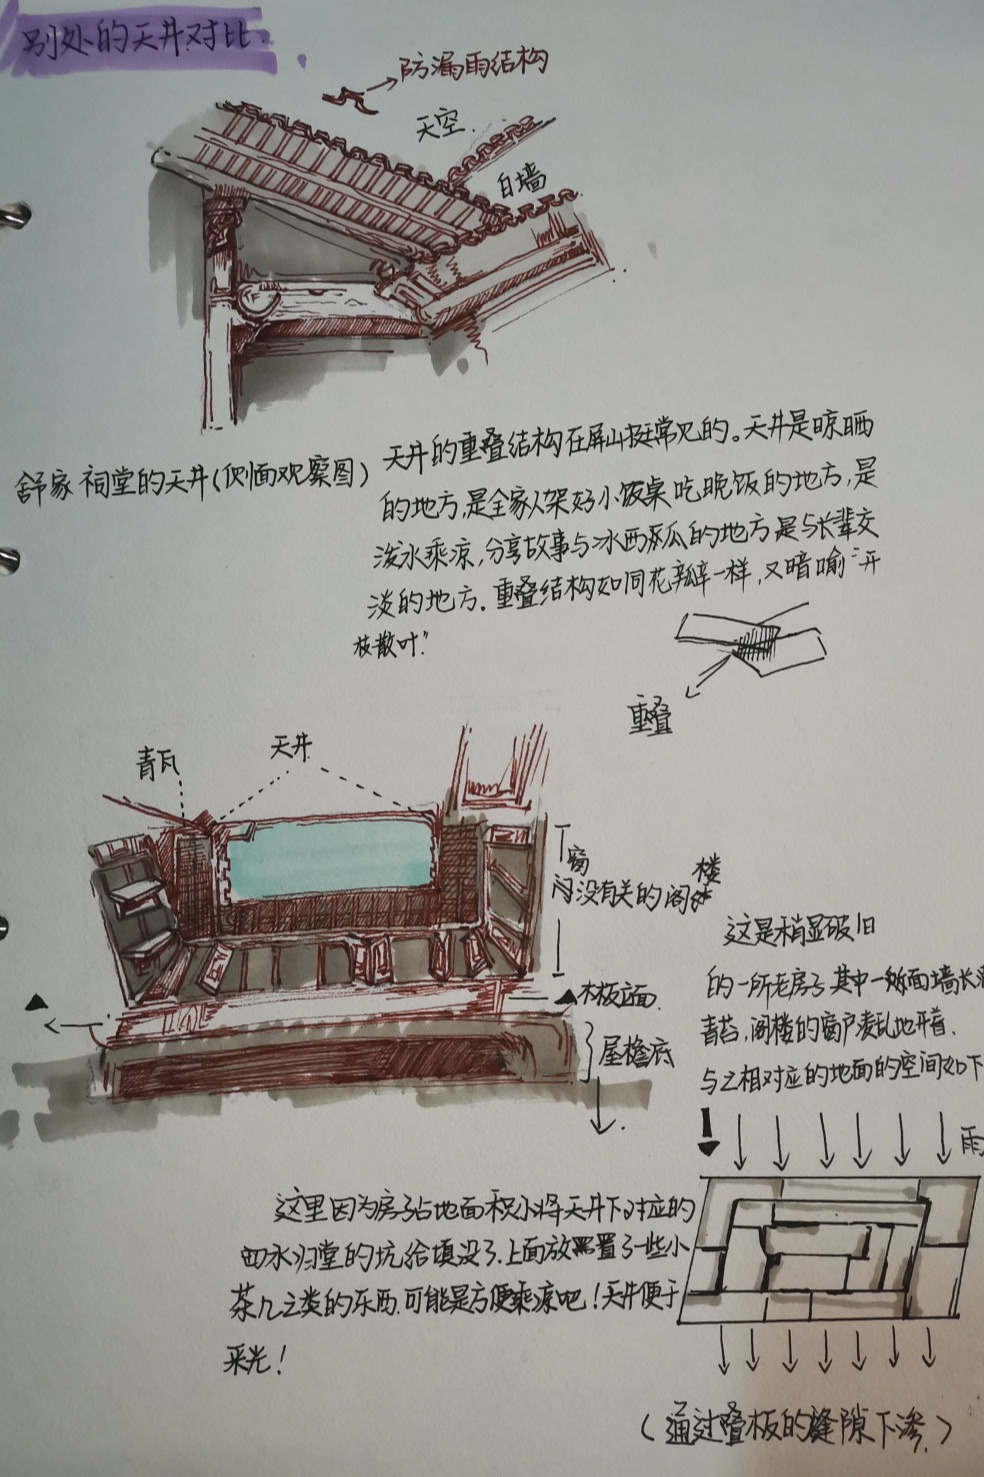 别处的天井对比.
防漏雨结构
天空.
白墙
舒家祠堂的天井(侧面观察图)
天井的重叠结构在屏山挺常见的。天井是晾晒
的地方,是全家人架好小饭桌吃晚饭的地方,是
泼水乘凉,分享故事与冰西瓜的地方是与长辈交
淡的地方.重叠结构如同花瓣一样,又暗喻“开
枝散叶”
重叠
青瓦
天井
窗
没有关的阁楼
木板立面.
屋檐底
这是稍显破旧
的一所老房子其中一面墙长满
青苔,阁楼的窗户凌乱地开着.
与之相对应的地面的空间如下
雨
这里因为房子占地面积小将天井下对应的
四水归堂的坑给填没了.上面放置了一些小
茶几之类的东西.可能是方便乘凉吧!天井便于
采光!
(通过叠板的缝隙下渗.)